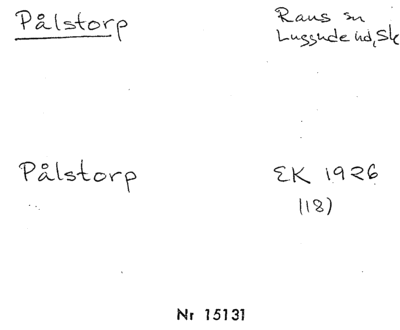 Pålstorp
Raus sn
Luggude hd, Sk
Pålstorp
EK 1926
(18)
Nr 15131